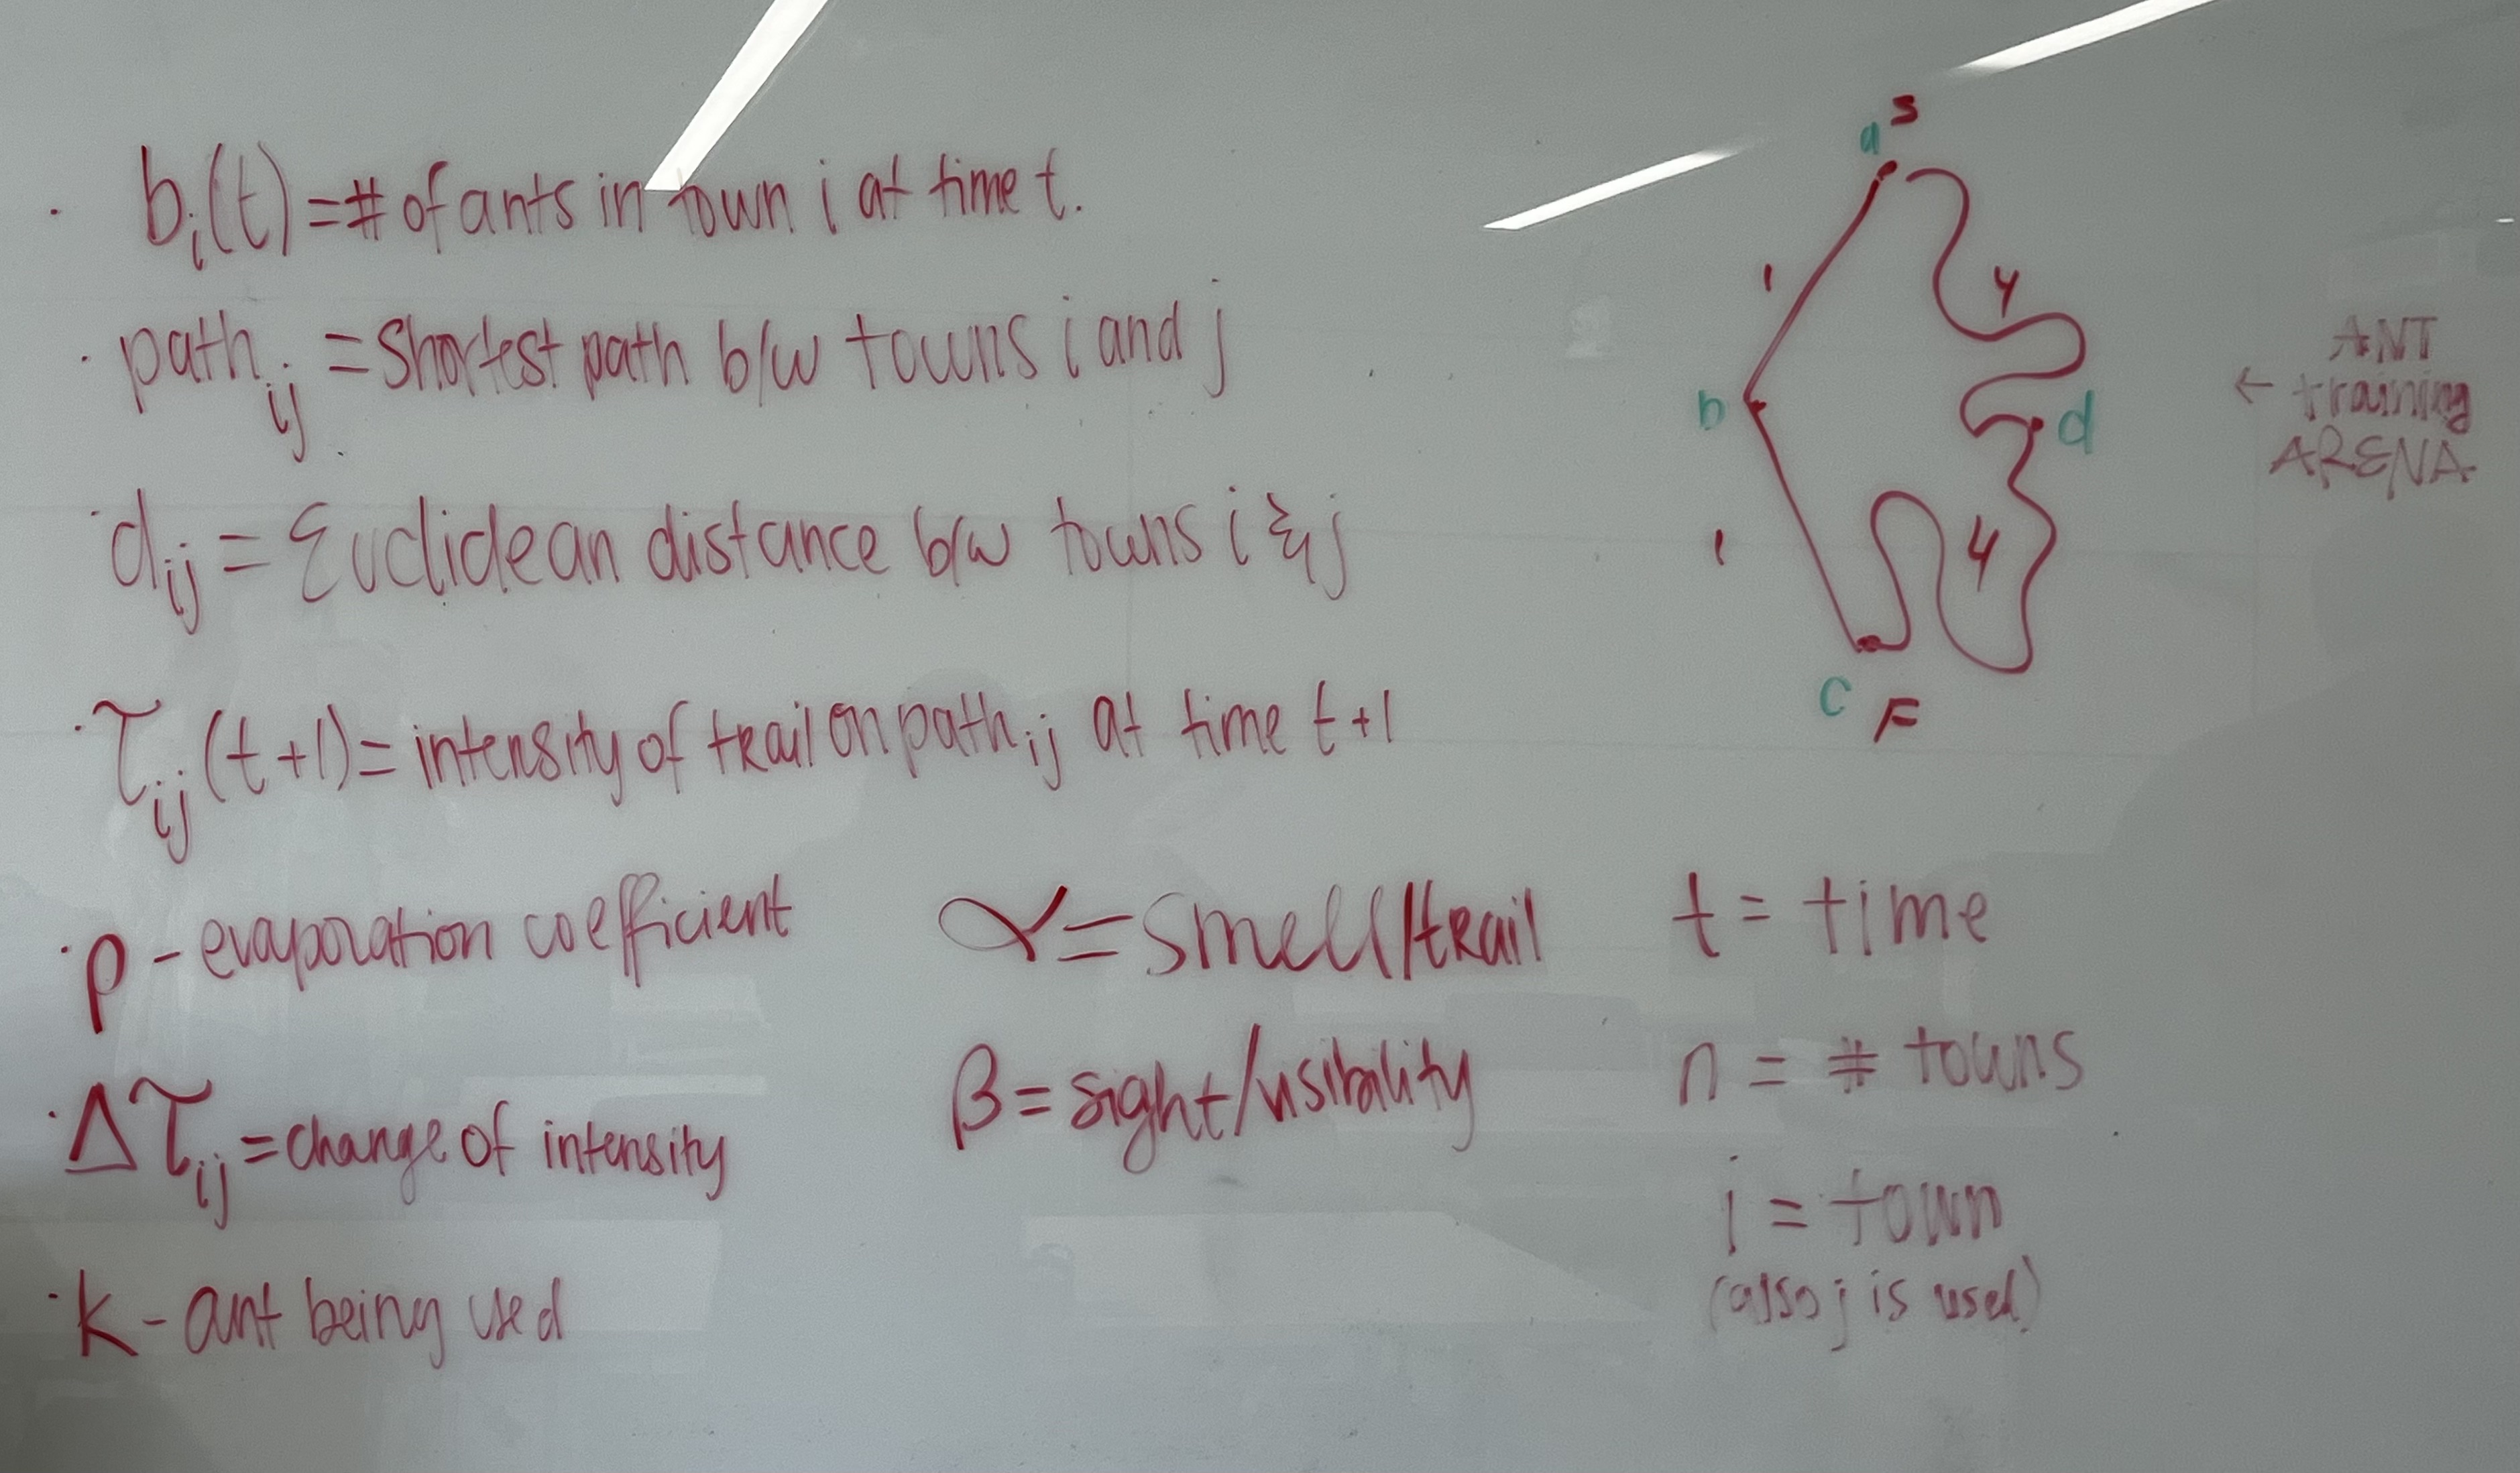 · bᵢ(t) = # of ants in town i at time t.
· pathᵢⱼ = Shortest path b/w towns i and j
· dᵢⱼ = Euclidean distance b/w towns i & j
· τᵢⱼ(t+1) = intensity of trail on pathᵢⱼ at time t+1
· ρ - evaporation coefficient
· Δτᵢⱼ = change of intensity
· k - ant being used
α = smell/trail
β = sight/visibility
t = time
n = # towns
i = town
(also j is used)
a S
1
4
b
d
1
4
c F
← ANT
training
ARENA